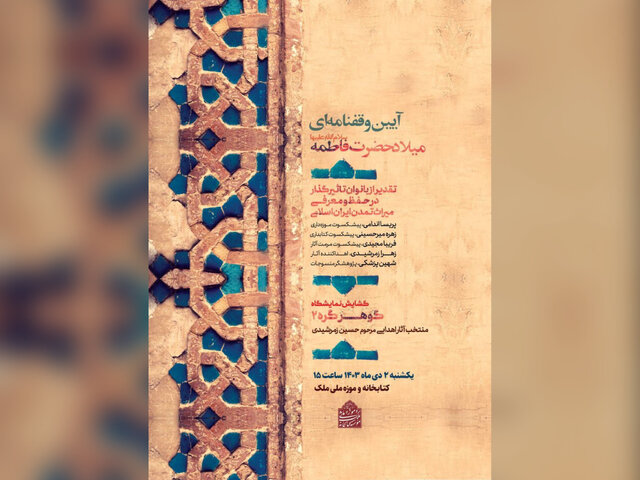 آیین وقفنامه‌ای
میلاد حضرت فاطمه
تقدیر از بانوان تاثیرگذار
در حفظ و معرفی
میراث تمدن ایران اسلامی
پریسا اندامی، پیشکسوت موزه‌داری
زهره میرحسینی، پیشکسوت کتابداری
فریبا مجیدی، پیشکسوت مرمت آثار
زهرا زمرشیدی، اهداکننده آثار
شهین پزشکی، پژوهشگر منسوجات
گشایش نمایشگاه
گوهر گره ۲
منتخب آثار اهدایی مرحوم حسین زمرشیدی
یکشنبه ۲ دی ماه ۱۴۰۳ ساعت ۱۵
کتابخانه و موزه ملی ملک